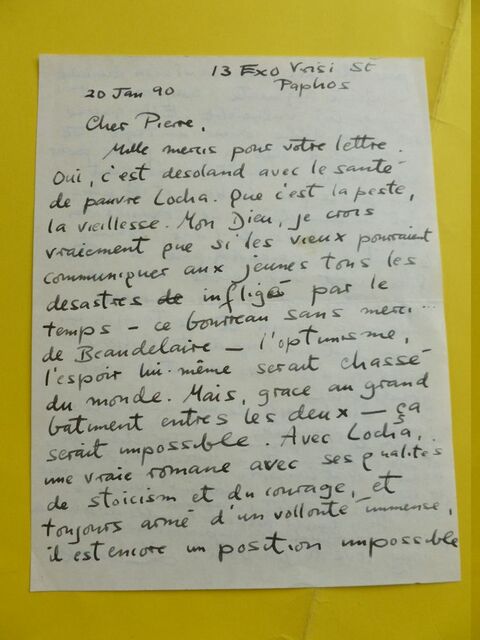 13 Exo Vrisi St
Paphos
20 Jan 90
Cher Pierre,
Mille mercis pour votre lettre.
Oui, c'est desoland avec le santé
de pauvre Locha. Que c'est la peste,
la vieillesse. Mon Dieu, je crois
vraiment que si les vieux pouvaient
communiquer aux jeunes tous les
desastres de infligé par le
temps – ce bourreau sans merci...
de Beaudelaire – l'optimisme,
l'espoir lui-même serait chassé
du monde. Mais, grace au grand
batiment entres les deux – ça
serait impossible. Avec Locha,
une vraie romane avec ses qualités
de stoicism et du courage, et
toujours armé d'un vollonté immense,
il est encore un position impossible